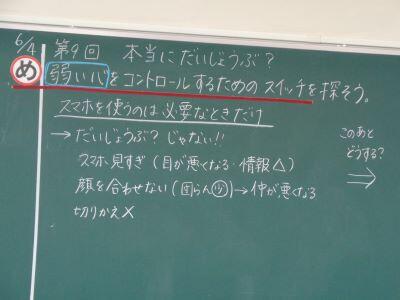 6/4 第9回 本当にだいじょうぶ?
め 弱い心をコントロールするためのスイッチを探そう。
スマホを使うのは必要なときだけ
→だいじょうぶ?じゃない!!
スマホ見すぎ(目が悪くなる・情報△)
顔を合わせない(団らん㊛)→仲が悪くなる
切りかえ×
このあと
どうする?
⇒